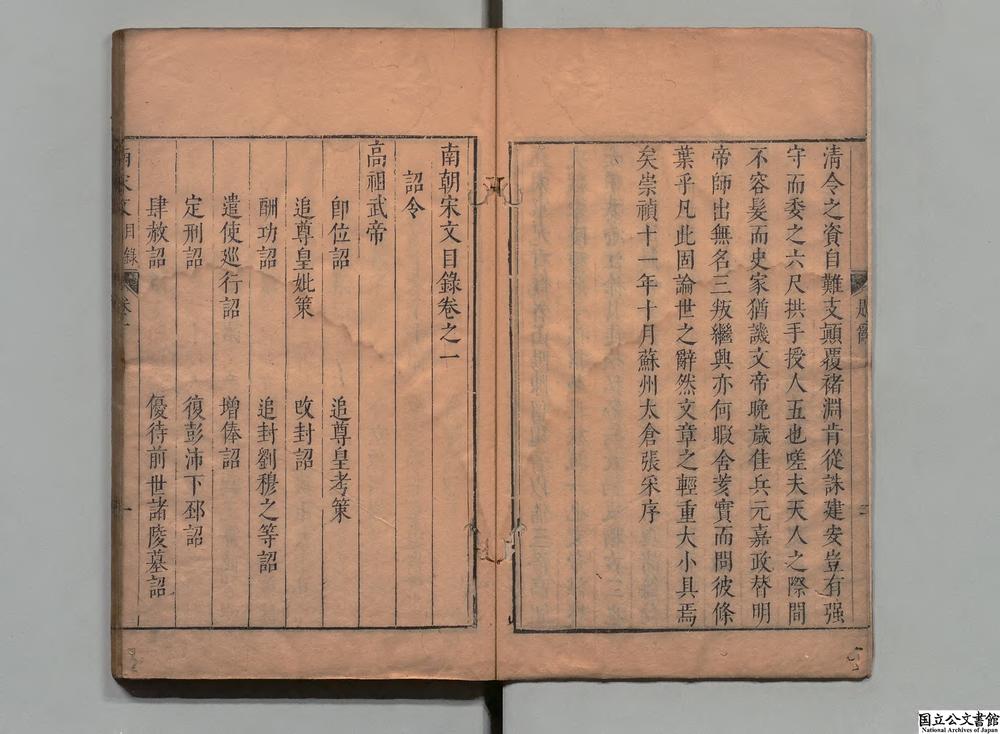 清令之資自難支顛覆褚淵肯從誅建安豈有强
守而委之六尺拱手授人五也嗟夫天人之際間
不容髮而史家猶譏文帝晚歲佳兵元嘉政替明
帝師出無名三叛繼興亦何暇舍亥實而問彼條
葉乎凡此固論世之辭然文章之輕重大小具焉
矣崇禎十一年十月蘇州太倉張采序
南朝宋文目錄卷之一
詔令
高祖武帝
卽位詔 追尊皇考策
追尊皇妣策 改封詔
酬功詔 追封劉穆之等詔
遣使廵行詔 增俸詔
定刑詔 復彭沛下邳詔
肆赦詔 優待前世諸陵墓詔
南宋文目錄 卷一 一
国立公文書館
National Archives of Japan